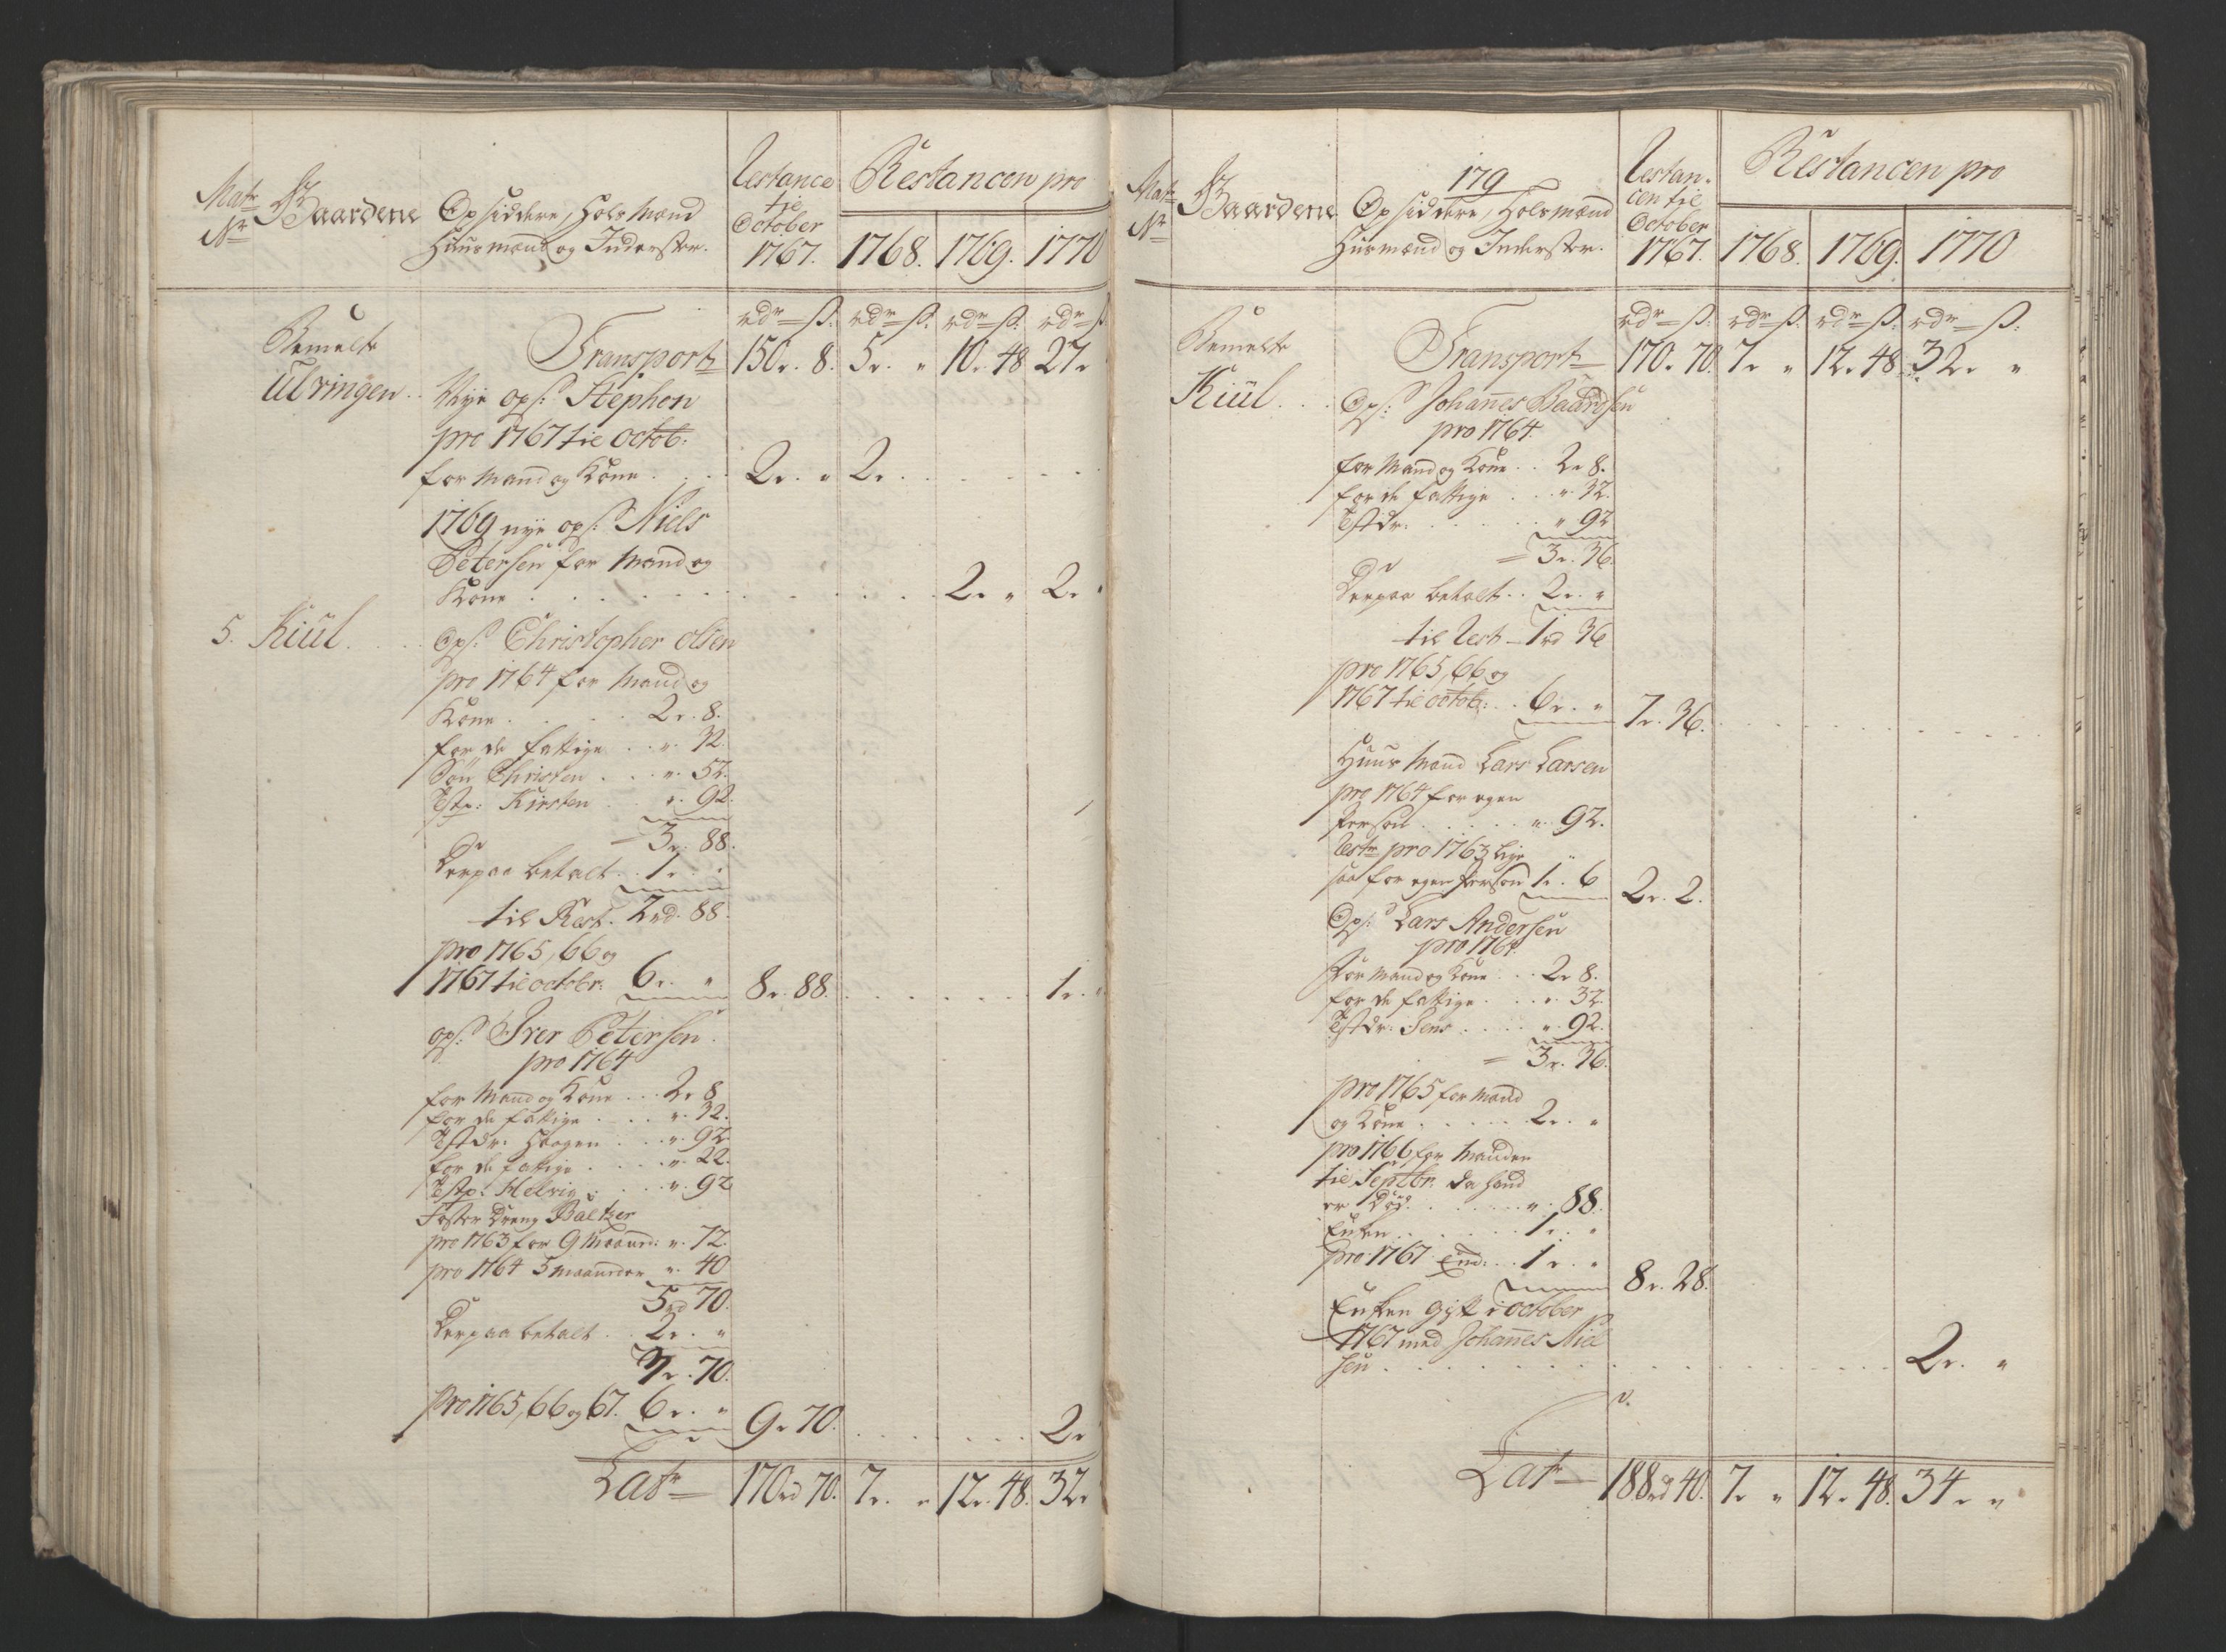 Matr Nr
Gaardene
Opsiddere, Holsmænd
Huusmænd og Inderster.
Restance til October 1767.
Restancen pro
1768. 1769. 1770
rdr ß: rdr ß: rdr ß: rdr ß
Bemelte Transport 150r. 8. 5r. " 10. 48 27r
Ulvringen. Nye ops: Stephen
pro 1767 til octob:
for Mand og Kone . . . 2r. " 2r. . . .
1769 nye ops: Niels
Petersen for Mand og
Kone . . . 2r. " 2r.
5. Kiül. Ops: Christopher Olsen
pro 1764 for Mand og
Kone . . . 2r. 8.
for de fattige . . ". 32.
Søn Christen . . . ". 52.
Tstp: Kirsten . ". 92.
= 3r. 88.
Derpaa betalt . . 1r. "
til Rest. 2rd. 88.
pro 1765, 66 og
1767 til octobr: 6r. " 8r. 88. . . . 1r. "
ops: Iver Petersen.
pro 1764
for Mand og Kone . . . 2r 8
for de fattige . . . ". 32.
Tstdr: Haagen . . ". 92.
for de fattige . . . ". 22.
Tstp: Helvig . . . ". 92
Foster Dreng Baltzer
pro 1763 for 9 Maaned: ". 72.
pro 1764 5 maaneder ". 40
5rd 70.
Derpaa betalt . . 2r. "
3r. 70.
Pro 1765, 66 og 67. 6r. " 9r 70. . . . 2r
Latr 170rd 70. 7r. " 12r. 48. 32r
179
Matr Nr
Gaardene
Opsiddere, Holsmænd
Husmænd og Inderster.
Restancen til October 1767.
Restancen pro
1768. 1769. 1770
rdr ß: rdr ß: rdr ß: rdr ß:
Bemelte Transport 170r. 70. 7r " 12r. 48. 32r. "
Kiül . . . Ops: Johannes Baardsen
pro 1764.
for Mand og Kone . . 2r 8.
for de fattige . . . ". 32.
Tstdr: . . . " 92
= 3r. 36.
Derpaa betalt . . 2r. "
til Rest 1rd 36
pro 1765, 66 og
1767 til octob: . . 6r. " 7r. 36. . . .
Huus Mand Lars Larsen
pro 1764 for egen
Person . . . ". 92.
Restr pro 1763 lige
saa for egen Person 1r. 6 2r. 2.
Ops: Lars Andersen
pro 1764.
For Mand og Kone . . . 2r 8.
for de fattige . . . ". 32.
Tstdr: Jens . . . ". 92.
= 3r. 36.
pro 1765 for Mand
og Kone . . . 2r. "
pro 1766 for Manden
til Septbr: da hand
er Død. . . . ". 88.
Enken . . . 1r. "
pro 1767 End: . . 1r. " 8r. 28.
Enken gift i october
1767 med Johannes Niel
sen . . . 2r. "
Latr 188rd 40. 7r " 12r. 48. 34r "